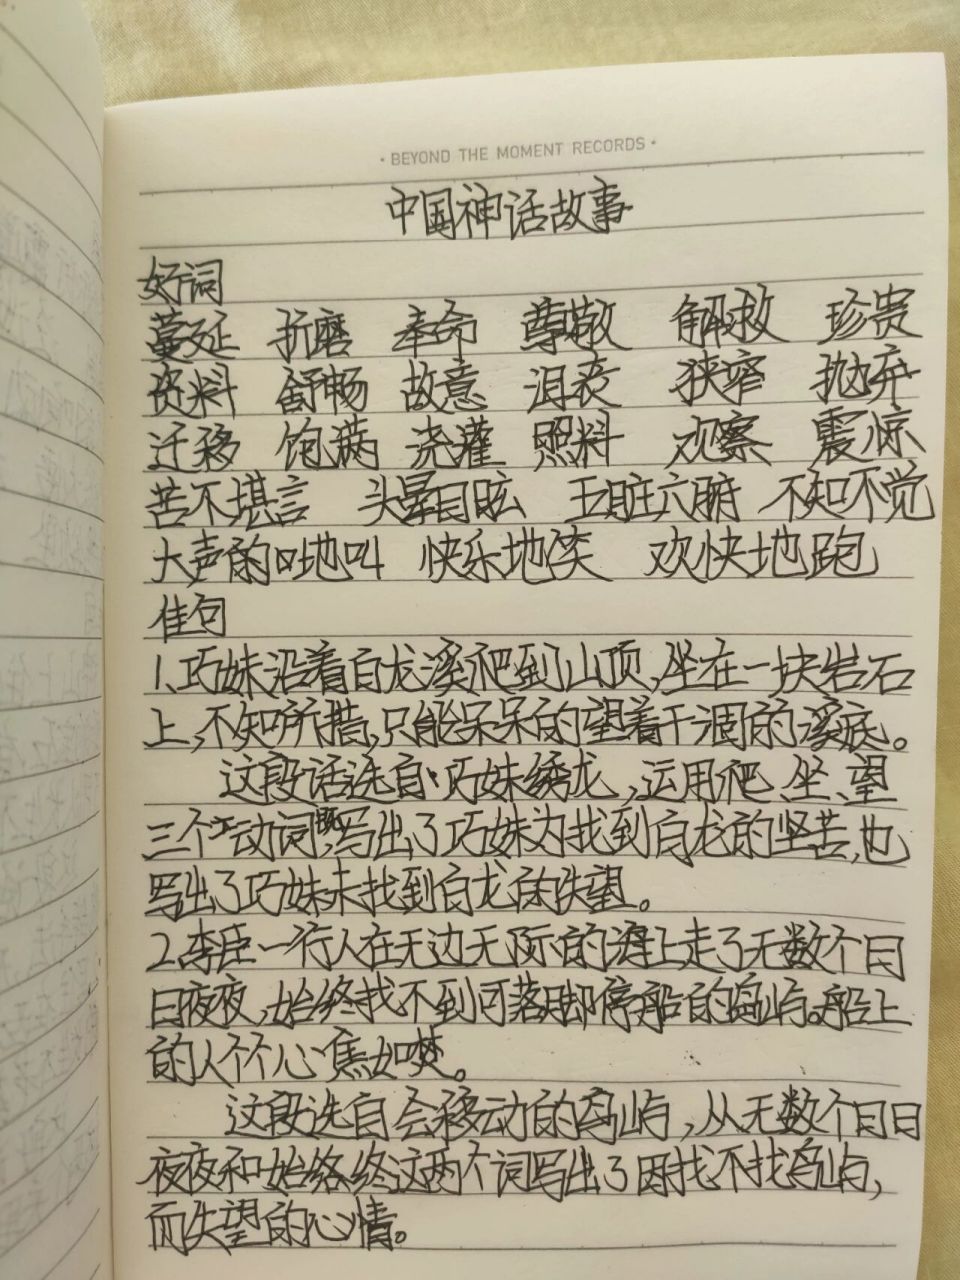 · BEYOND THE MOMENT RECORDS ·
中国神话故事
好词
蔓延 折磨 奉命 尊敬 解救 珍贵
资料 舒畅 故意 沮丧 狭窄 抛弃
迁移 饱满 浇灌 照料 观察 震惊
苦不堪言 头晕目眩 五脏六腑 不知不觉
大声的吼地叫 快乐地笑 欢快地跑
佳句
1.巧妹沿着白龙溪爬到山顶,坐在一块岩石
上,不知所措,只能呆呆的望着干涸的溪底。
这段话选自巧妹绣龙,运用爬、坐、望
三个动词,写出了巧妹为找到白龙的坚苦,也
写出了巧妹未找到白龙的失望。
2.李臣一行人在无边无际的海上走了无数个日
日夜夜,始终找不到可落脚停船的岛屿。船上
的人个个心焦如焚。
这段选自会移动的岛屿,从无数个日日
夜夜和始终这两个词写出了因找不找岛屿,
而失望的心情。